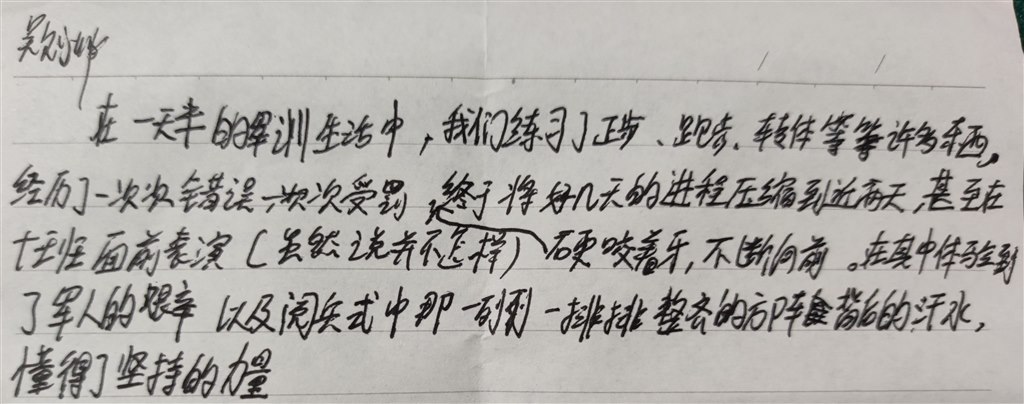 在一天半的军训生活中，我们练习了正步、跑步、转体等等许多东西，
经历了一次次错误一次次受罚，终于将好几天的进程压缩到近两天，甚至在
主任面前表演（虽然说并不怎样）硬咬着牙，不断向前。在其中体验到
了军人的艰辛以及阅兵式中那一列列一排排整齐的方阵背后的汗水，
懂得了坚持的力量